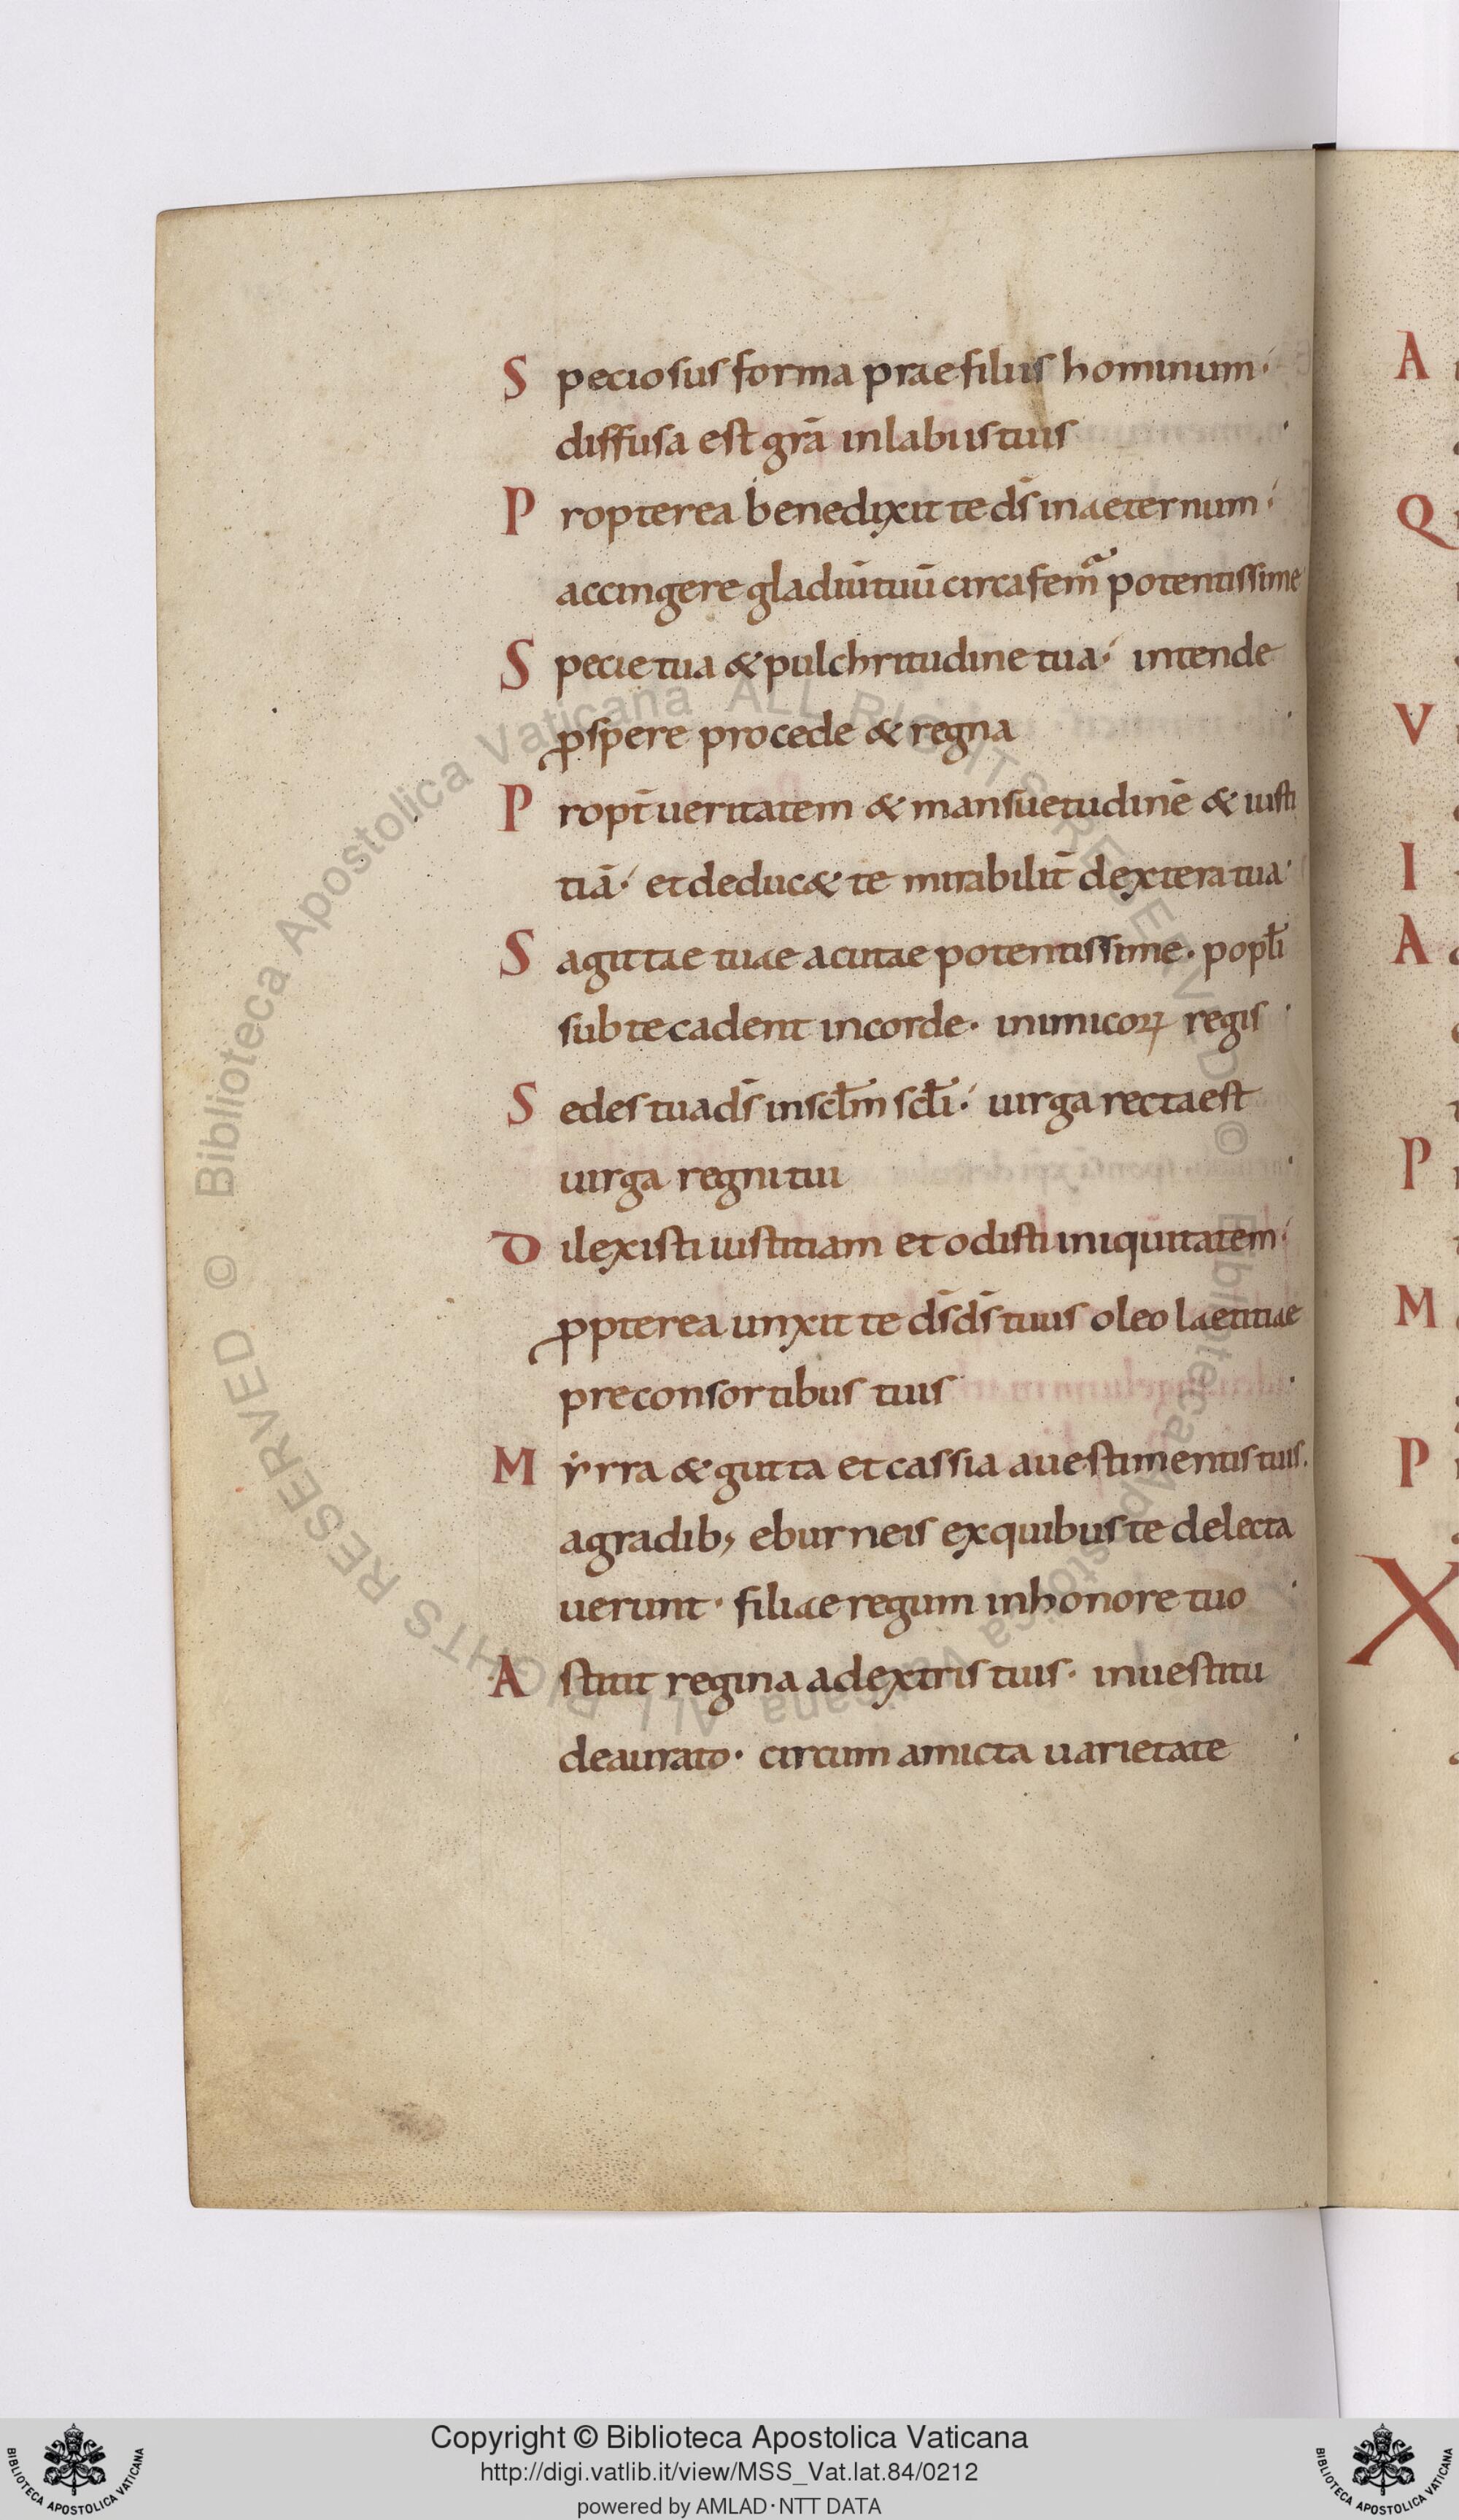 Speciosus forma prae filiis hominum·
diffusa est grā in labiis tuis ·
Propterea benedixit te ds̄ in aeternum·
accingere gladiū tuū circa femͣ potentissime·
Specie tua & pulchritudine tua· intende
ꝓspere procede & regna ·
Propt̄ ueritatem & mansuetudinē & iusti
tiā· et deduc& te mirabilit̄ dextera tua·
Sagittae tuae acutae potentissime· popl̄i
sub te cadent in corde· inimicoꝝ regis ·
Sedes tua ds̄ in scl̄m scl̄i· uirga recta est
uirga regni tui ·
Dilexisti iustitiam et odisti iniquitatem·
ꝓpterea unxit te ds̄ ds̄ tuus oleo laetitiae
pre consortibus tuis ·
Mẏrra & gutta et cassia a uestimentis tuis.
a gradib; eburneis ex quibus te delecta
uerunt· filiae regum in honore tuo ·
Astitit regina a dextris tuis· in uestitu
deaurato· circum amicta uarietate ·
A
Q
V
I
A
P
M
P
X
© Biblioteca Apostolica Vaticana ALL RIGHTS RESERVED © Biblioteca Apostolica Vaticana ALL RIGHTS RESERVED
BIBLIOTECA APOSTOLICA VATICANA
Copyright © Biblioteca Apostolica Vaticana
http://digi.vatlib.it/view/MSS_Vat.lat.84/0212
powered by AMLAD·NTT DATA
BIBLIOTECA APOSTOLICA VATICANA